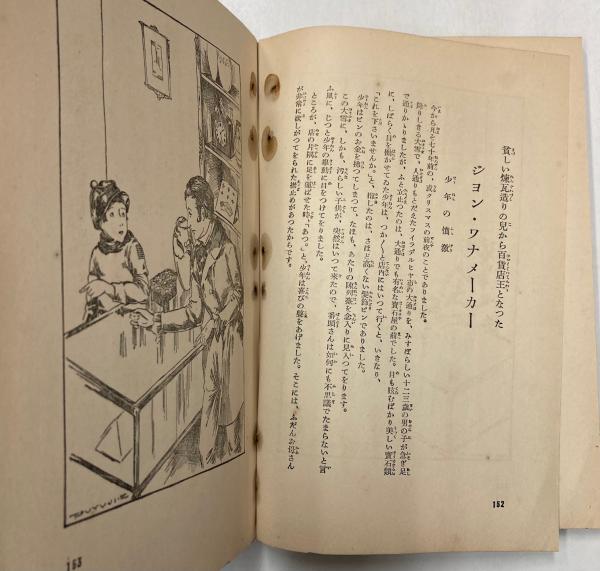 貧しい煉瓦造りの兒から百貨店王となつた
ジヨン・ワナメーカー
少年の憤激
今から凡そ七十年前の、或クリスマスの前夜のことでありました。
降りしきる大雪で、人通りもとだえたフイラデルヒヤ市の大通りを、みすぼらしい十二三歳の男の子が急ぎ足
で通りかゝりましたが、ふと立止つたのは、大通りでも有名な寶石屋の前でした。目も眩むばかり美しい寶石類
に、しばらく目を働かせてゐた少年は、つか〳〵と店内にはいつて行くと、いきなり、
「これを下さいませんか。」と、指したのは、さほど高くない髪飾ピンでありました。
少年はピンのお金を拂つてしまつて、なほも、あたりの陳列臺を念入りに見入つてをります。
この大雪に、しかも、汚らしい子供が、突然はいつて來たので、番頭さんは如何にも不思議でたまらないと言
ふ風に、じつと少年の擧動に目をつけてをりました。
ところが、店の片隅に足を運ばせた時、「あつ。」と、少年は喜びの聲をあげました。そこには、ふだんお母さん
が非常に欲しがつてをられた襟止めがあつたからです。
152
153